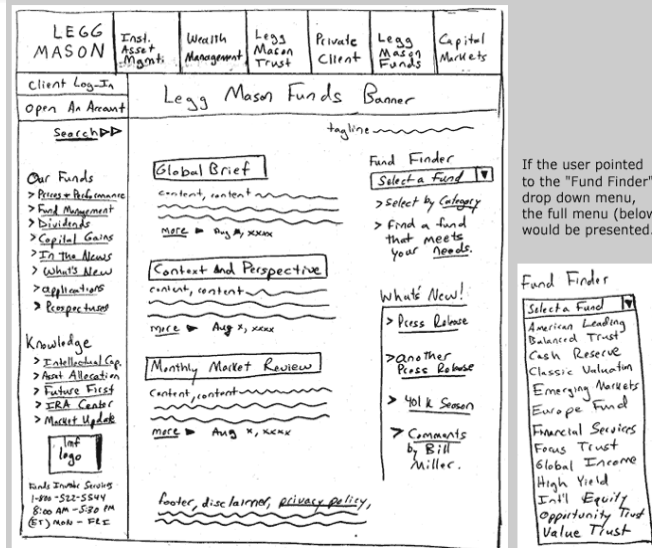 LEGG
MASON
Inst.
Asset
Mgmt.
Wealth
Management
Legg
Mason
Trust
Private
Client
Legg
Mason
Funds
Capital
Markets
Client Log-In
Open An Account
Legg Mason Funds Banner
Search
tagline
Our Funds
> Prices + Performance
> Fund Management
> Dividends
> Capital Gains
> In The News
> What's New
> applications
> Prospectuses
Knowledge
> Intellectual Cap.
> Asset Allocation
> Future First
> IRA Center
> Market Update
lmf
logo
Funds Investor Services
1-800-522-5544
8:00 AM - 5:30 PM
(ET) MON - FRI
Global Brief
content, content
more Aug x, xxxx
Context And Perspective
content, content
more Aug x, xxxx
Monthly Market Review
content, content
more Aug x, xxxx
footer, disclaimer, privacy policy,
Fund Finder
Select a Fund
> select by Category
> Find a fund
that meets
your needs.
What's New!
> Press Release
> another
Press Release
> 401 k Season
> Comments
by Bill
Miller.
If the user pointed
to the "Fund Finder"
drop down menu,
the full menu (below
would be presented.
Fund Finder
Select a Fund
American Leading
Balanced Trust
Cash Reserve
Classic Valuation
Emerging Markets
Europe Fund
Financial Services
Focus Trust
Global Income
High Yield
Int'l Equity
Opportunity Trust
Value Trust